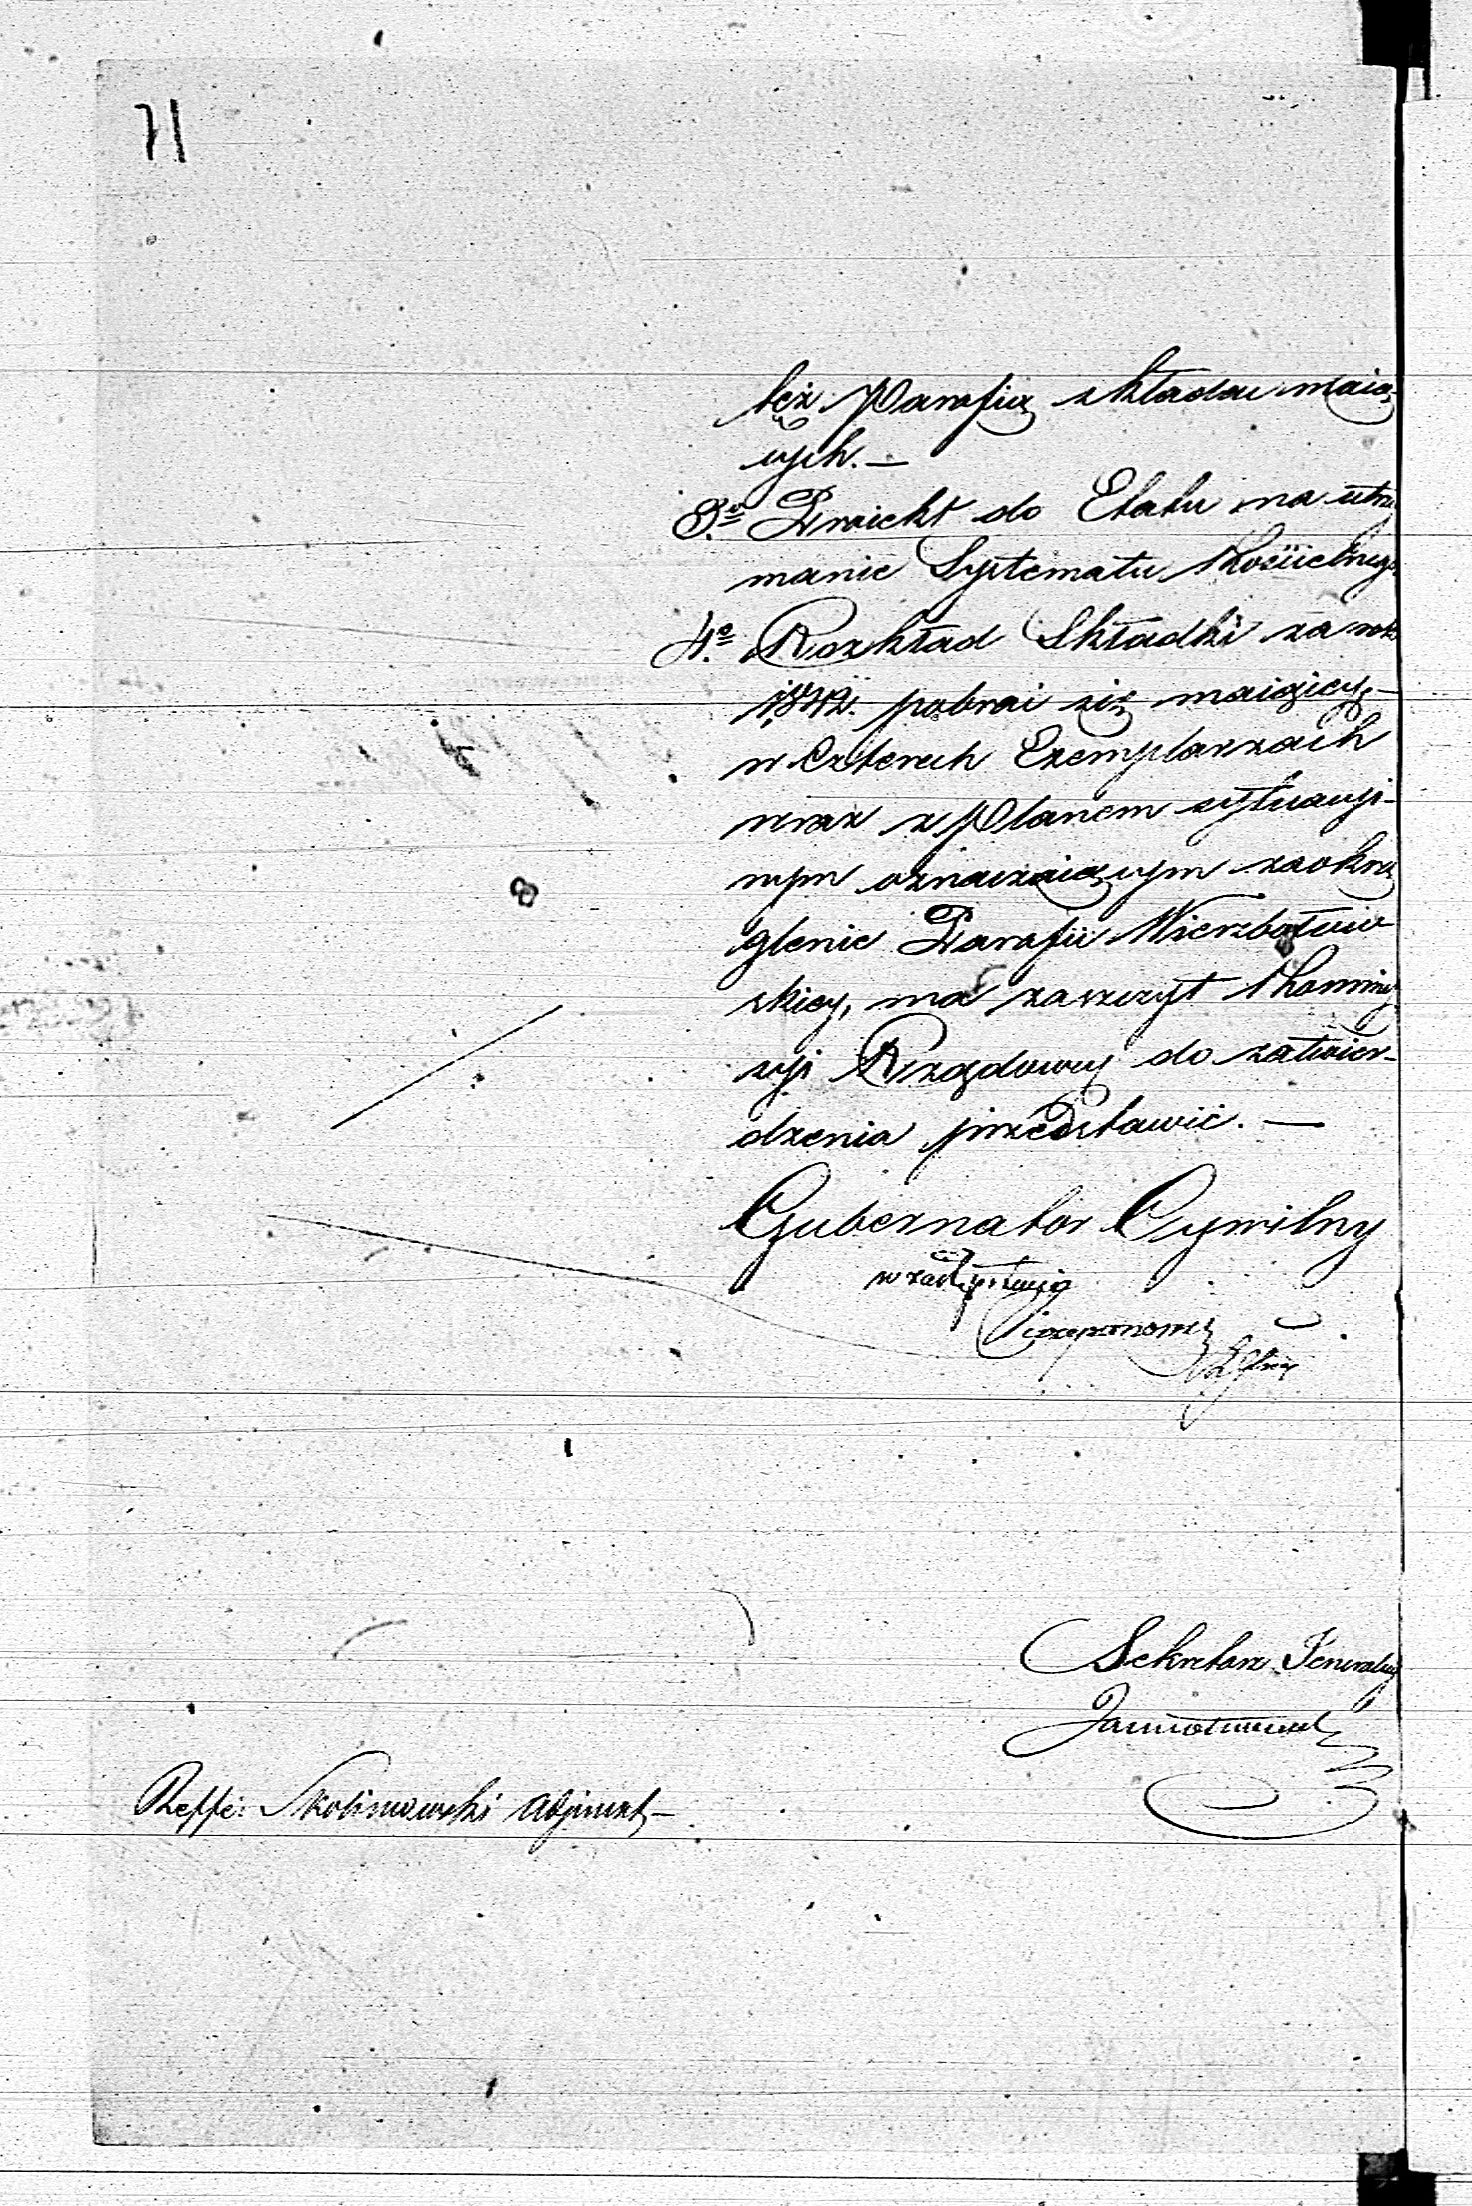 71
też Parafią składać maią
cych. —
3.º Proiekt do Etatu na utrzy
manie Systematu Kościelnego
4.º Rozkład Składki za rok
1842. pobrać się maiącey,
w Czterech Exemplarzach
wraz z Planem sytuacyi-
nym oznaczaiącym zaokrą
glenie Parafii Wierzbołow
skiey, ma zaszczyt Kommis
syi Rządowey do zatwier-
dzenia przedstawić. —
Gubernator Cywilny
w zastępstwie
Sekretarz Jeneralny
Reffe: Skolimowski Adjunkt